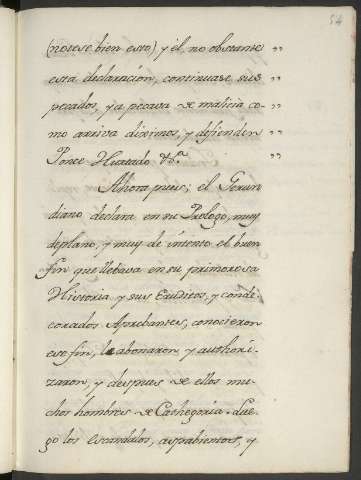 54
(notese bien esto) y él, no obstante "
esta declaracion, continuase sus "
pecados, ya pecava de malicia co- "
mo arriva diximos, y defienden "
Ponce Hurtado &.ª "
Ahora pues; el Gerun
diano declara en su Prologo, muy
deplano, y muy de intento el buen
fin que llebava en su primorosa
Historia y sus Eruditos, y conde-
corados Aprobantes, conocieron
ese fin, le abonaron, y authori-
zaron, y despues de ellos mu-
chos hombres de Cathegoria. Lue-
go los escandalos, aspabientos, y